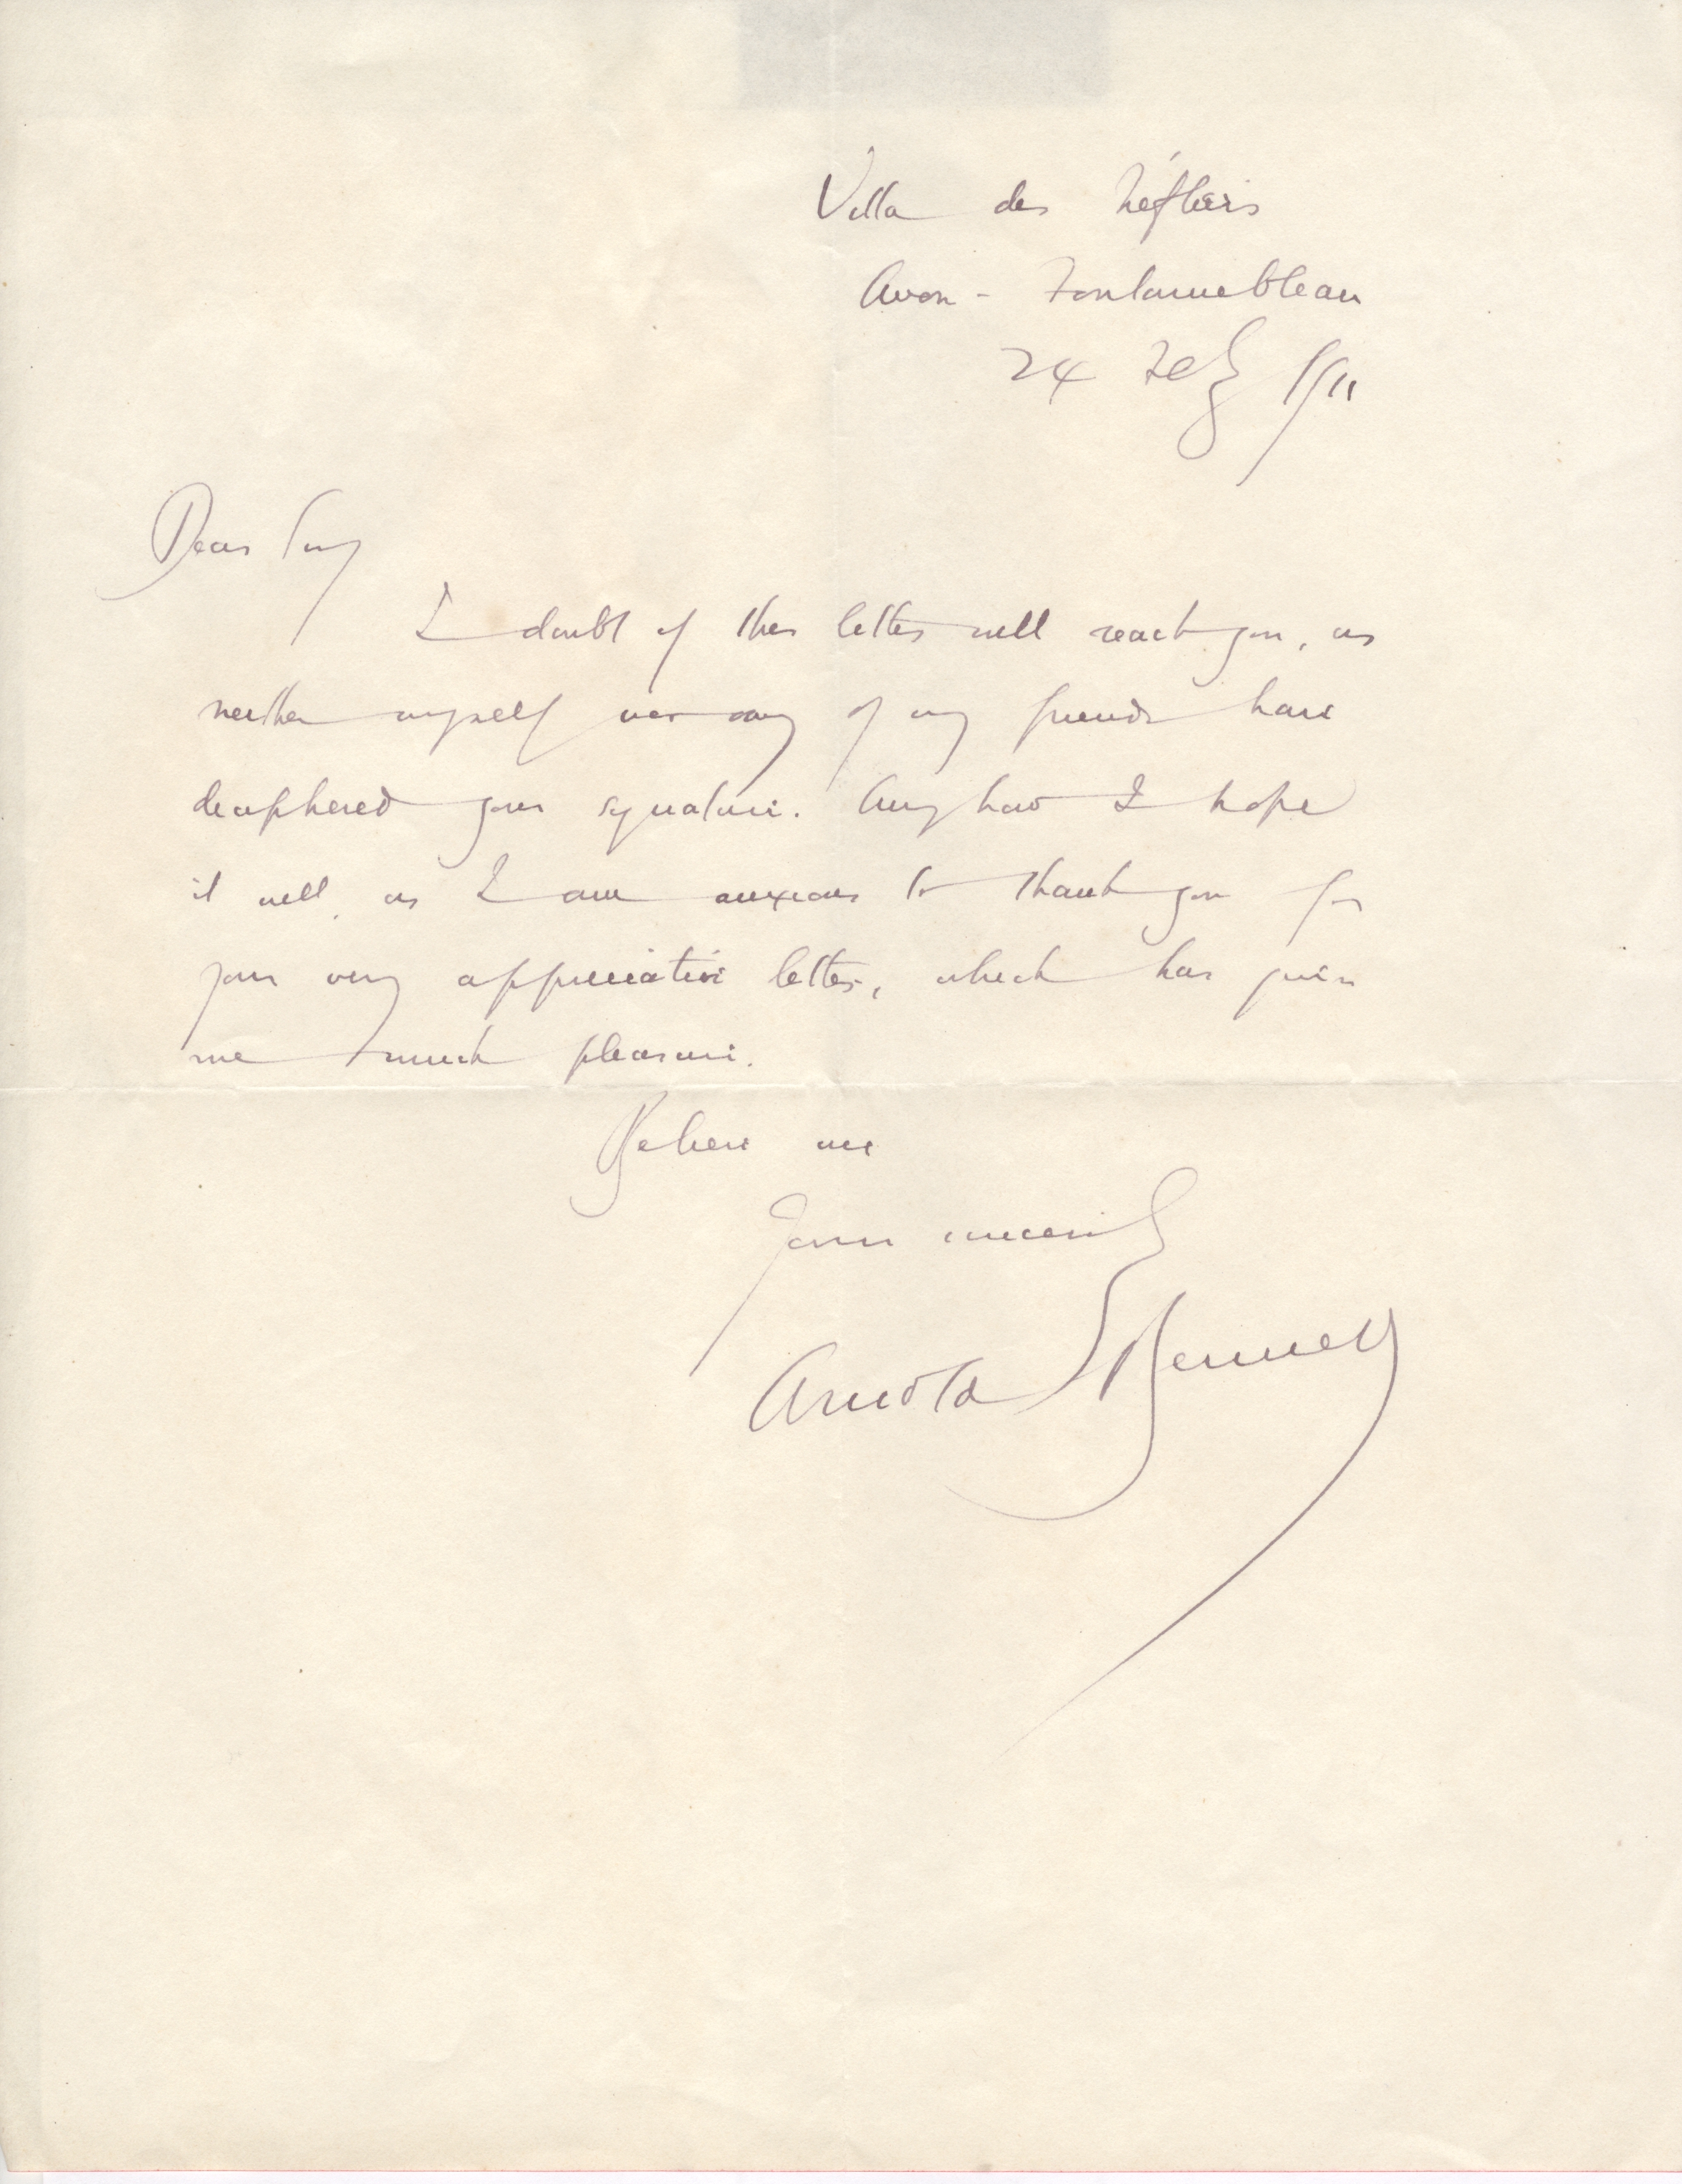 Villa des Néfliers
Avon - Fontainebleau
24 Feb 1911
Dear Sir,
I doubt if this letter will reach you, as
neither myself nor any of my friends have
deciphered your signature. Anyhow I hope
it will, as I am anxious to thank you for
your very appreciative letter, which has given
me much pleasure.
Believe me
Yours sincerely
Arnold Bennett